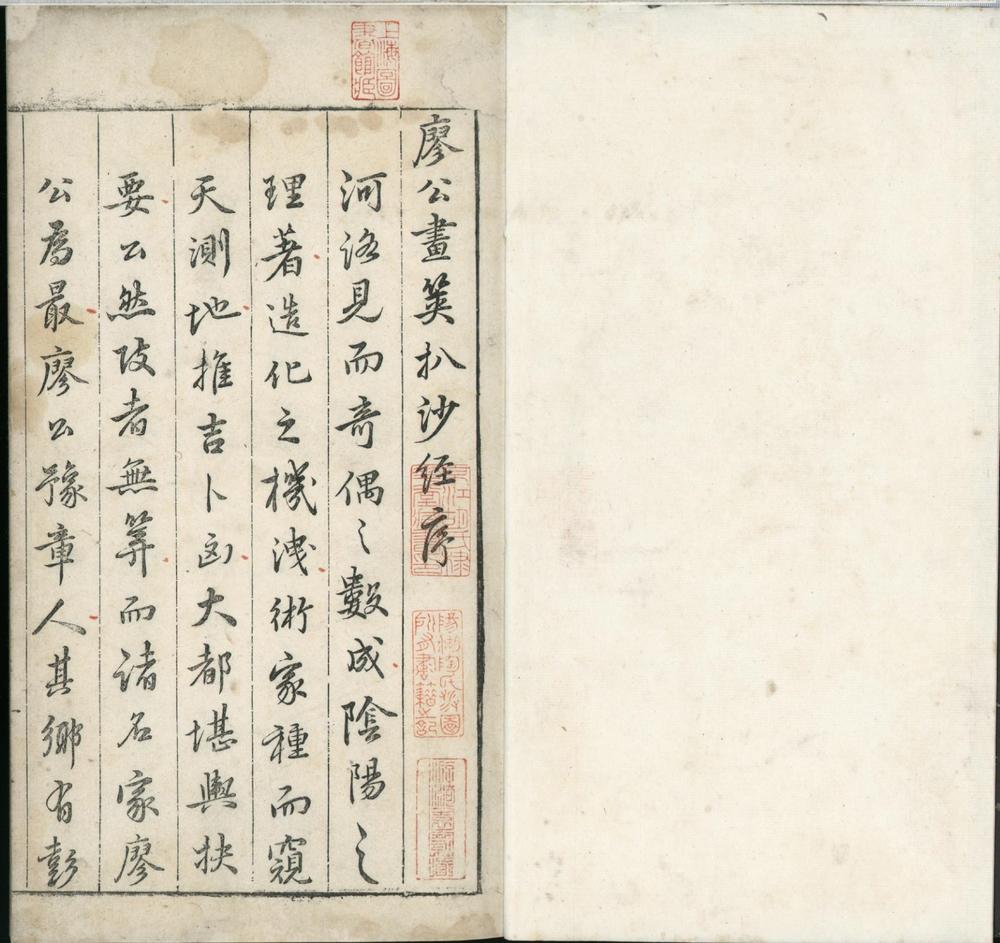 廖公畫筴扒沙經序
河洛見而奇偶之數成陰陽之
理著造化之機洩術家種而窺
天測地推吉卜凶大都堪輿抉
要公然攷者無筭而諸名家廖
公為最廖公豫章人其鄉有彭
上海圖書館藏